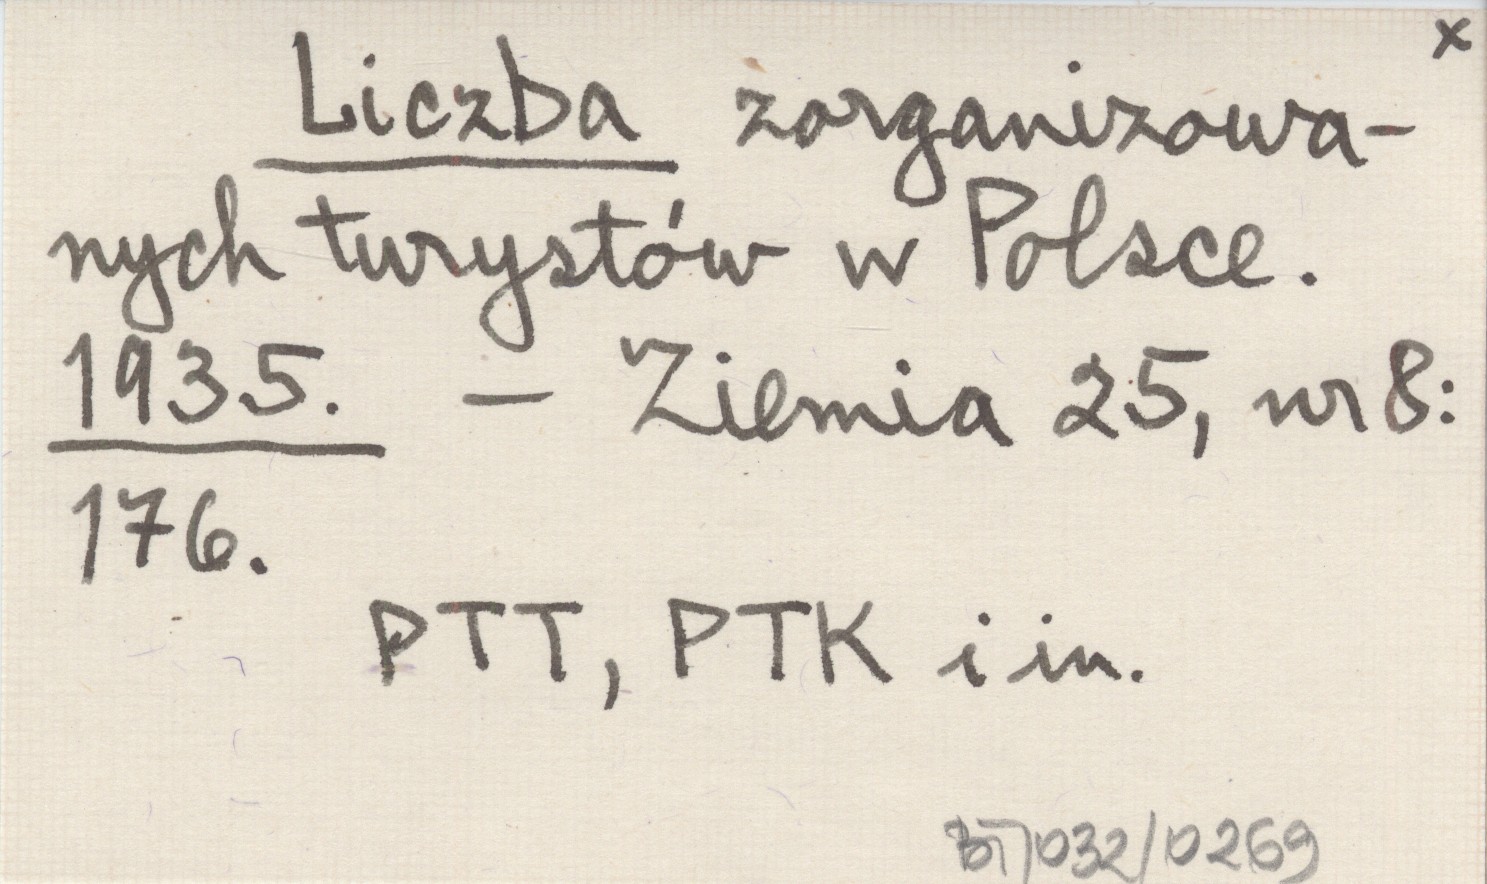 x
Liczba zorganizowa-
nych turystów w Polsce.
1935. — Ziemia 25, nr 8:
176.
PTT, PTK i in.
BT/032/0269